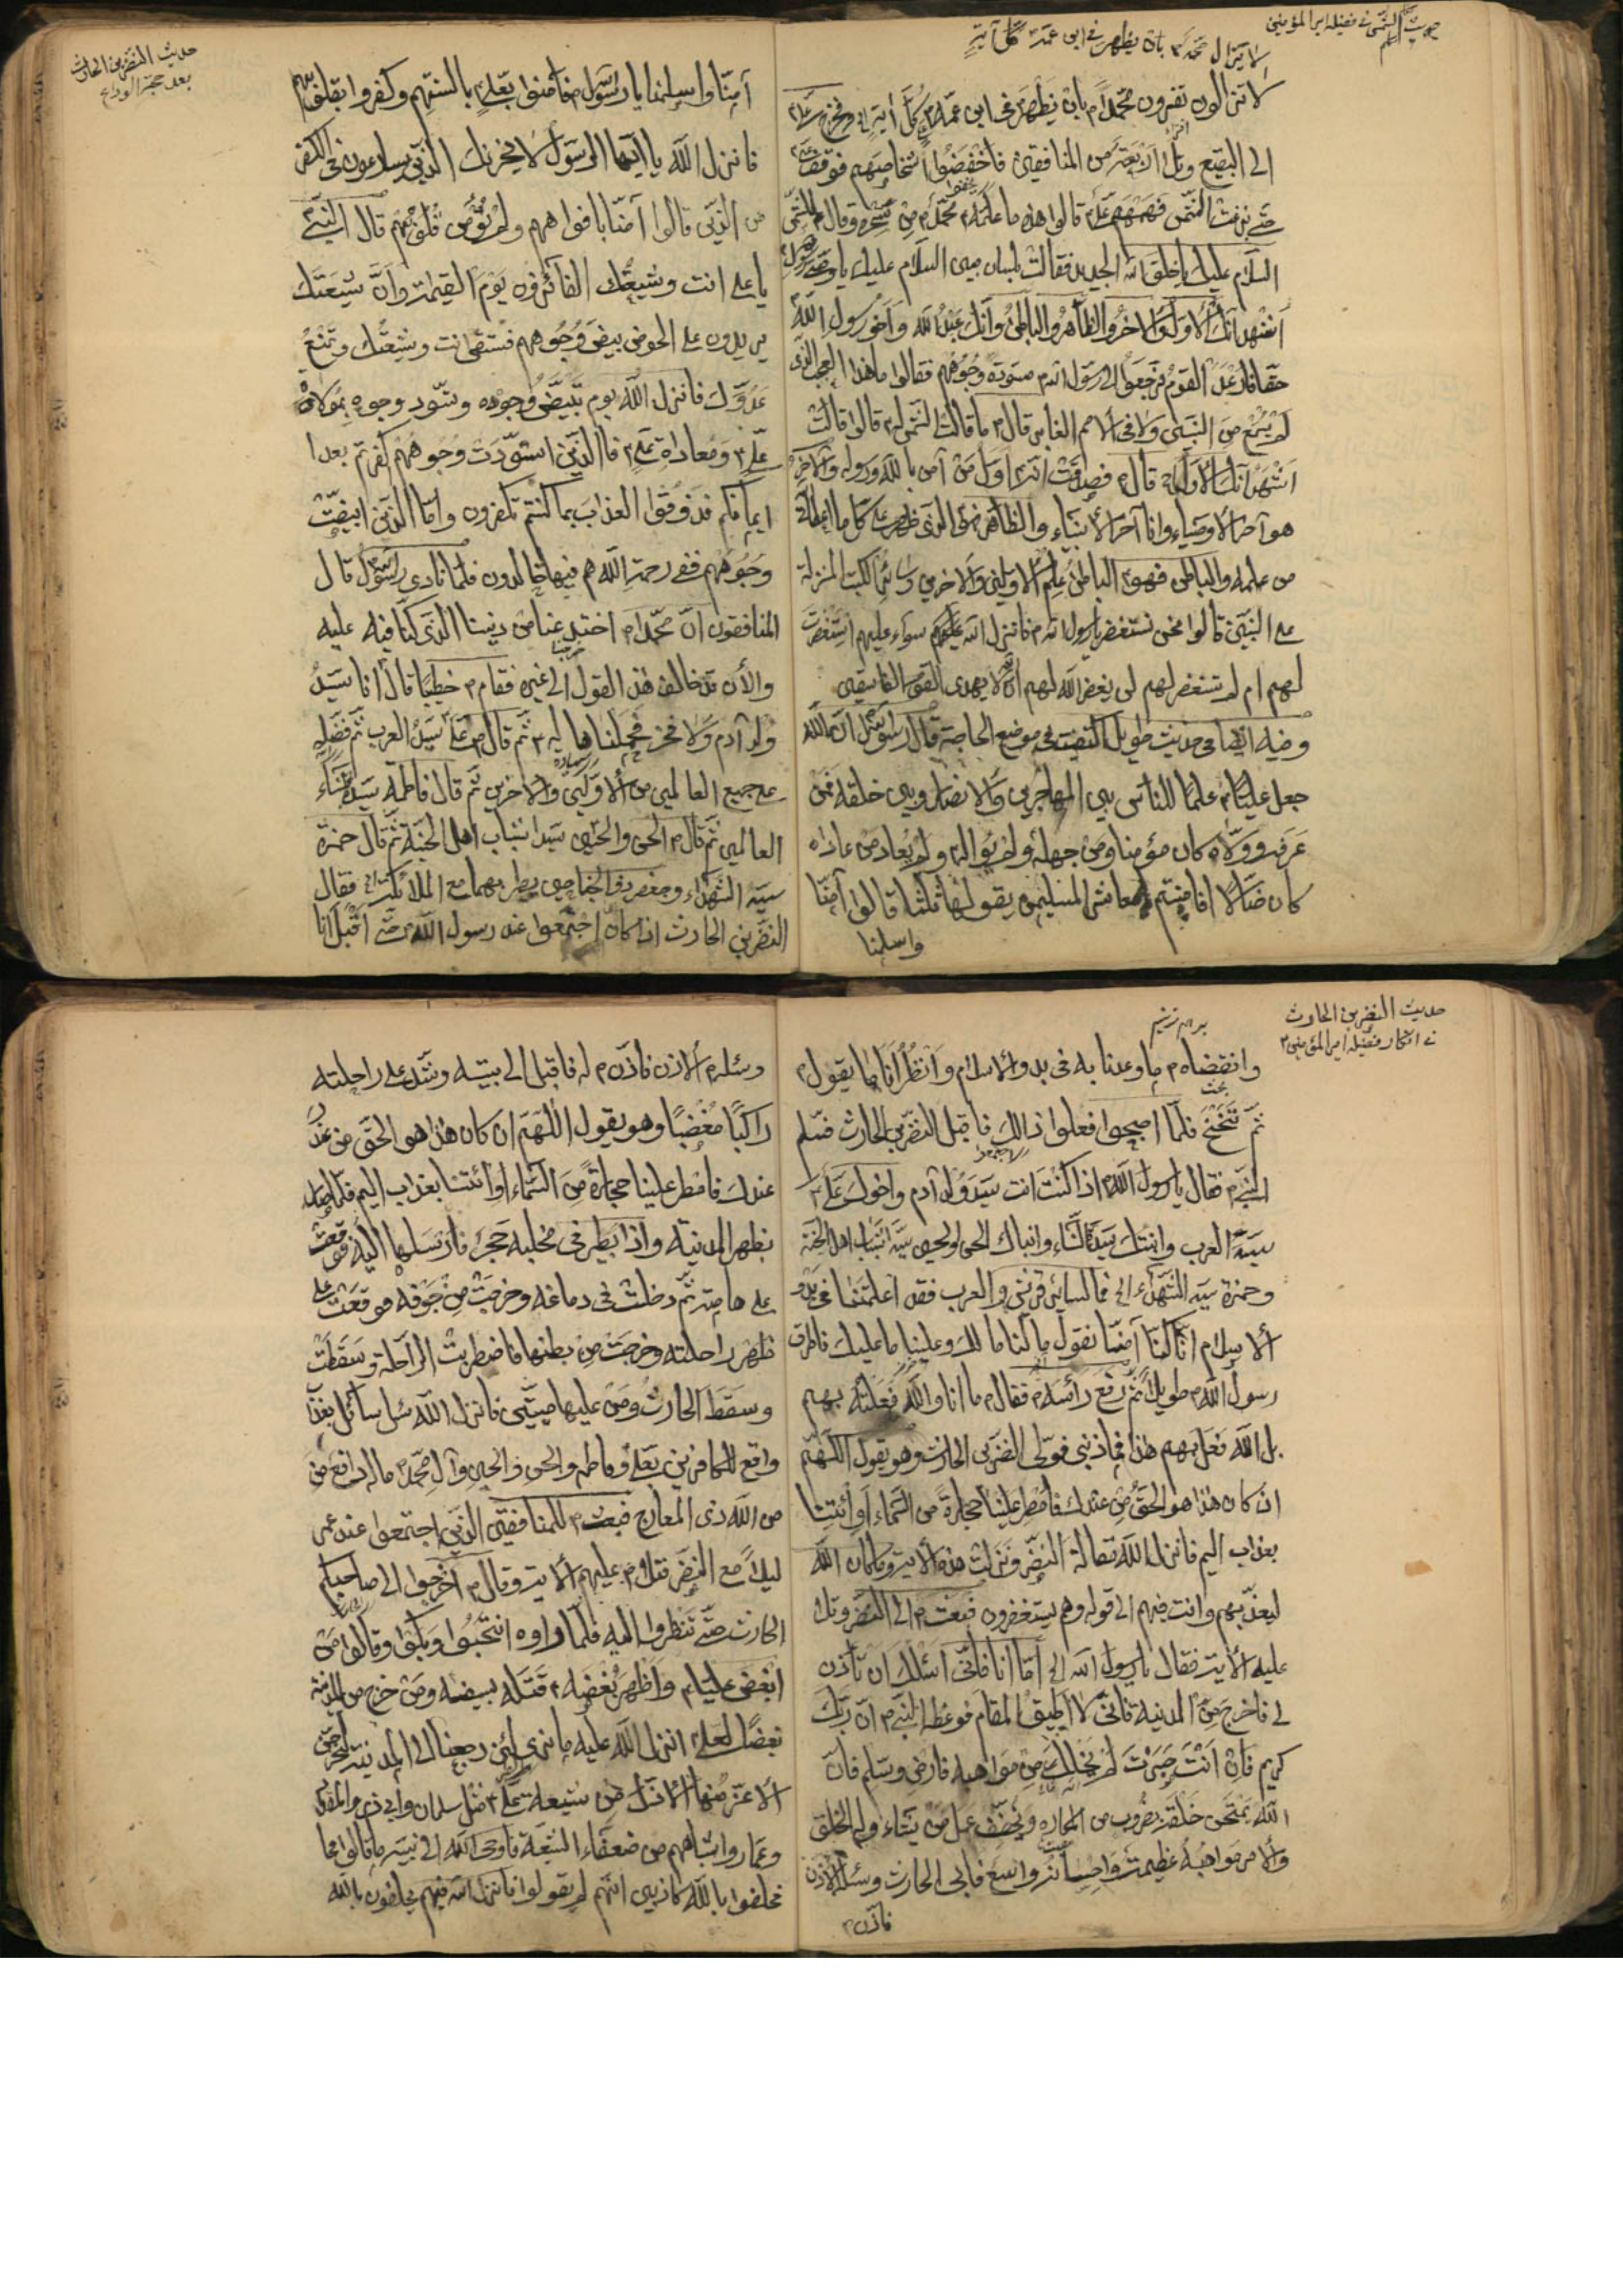 حديث الشمس في فضيلة امير المؤمنين
لا يزال محمد م بان يظهر في ابن عمه كل آية
لا تزالون تقرون محمدا م بان يظهر في ابن عمه كل آية الى وخرج علي
الى البقيع وتلا اربعة من المنافقين فاخفضوا اشخاصهم فوقف
حتى بزغت الشمس فهمهم علي قالوا هذا ما علمه محمد م من سحره وقال للشمس
السلام عليك يا خلق الله الجديد فقالت بلسان مبين السلام عليك يا وصي رسول الله
اشهد انك الاول والاخر والظاهر والباطن وانك عبد الله واخو رسول الله
حقا القوم فرجعوا الى رسول الله م مسودة وجوههم فقالوا ما هذا العجب الذي
لم نسمع من النبيين ولا في الامم الغابر قال م ما قالت الشمس له قالوا قالت
اشهد انك الاول قال م فصدقت انه اول من آمن بالله ورسوله والاخر
هو آخر الاوصياء وانا آخر الانبياء والظاهر فهو الذي ظهر على كل ما اعطاني
من علمه والباطن فهو الباطن علم الاولين والاخرين وسائر الكتب المنزلة
على النبيين قالوا نحن نستغفر يا رسول الله م فانزل الله عليهم سواء عليهم استغفرت
لهم ام لم تستغفر لهم لن يغفر الله لهم ان الله لا يهدي القوم الفاسقين
وفيه ايضا في حديث طويل في موضع الحاجة قال رسول الله ان الله
جعل عليا م علما للناس بين المهاجرين والانصار وبين خلقه فمن
عرفه ووالاه كان مؤمنا ومن جهله ولم يواله ولم يعاد من عاداه
كان ضالا افامنتم يا معاشر المسلمين يقولها ثلثا قالوا آمنا
واسلمنا
حديث النضر بن الحارث
بعد حجة الوداع
آمنا واسلمنا يا رسول الله م فآمنوا بعلي م بالسنتهم وكفروا بقلوبهم
فانزل الله يا ايها الرسول لا يحزنك الذين يسارعون في الكفر
من الذين قالوا آمنا بافواههم ولم تؤمن قلوبهم قال النبي م
يا علي انت وشيعتك الفائزون يوم القيمة وان شيعتك
يردون على الحوض بيض وجوههم فتسقي انت وشيعتك وتمنع
عدوك فانزل الله يوم تبيض وجوه وتسود وجوه بموالاة
علي م ومعاداة علي م فاما الذين اسودت وجوههم اكفرتم بعد
ايمانكم فذوقوا العذاب بما كنتم تكفرون واما الذين ابيضت
وجوههم ففي رحمة الله هم فيها خالدون فلما نادى رسول الله قال
المنافقون ان محمدا م اختبر عنا من ديننا الذي كنا فيه عليه
والان قد خالف هذا القول الى غيره فقام م خطيبا قال انا سيد
ولد آدم ولا فخر فحملناها له م ثم قال م علي سيد العرب ثم فضله
على جميع العالمين من الاولين والاخرين ثم قال فاطمة سيدة نساء
العالمين ثم قال م الحسن والحسين سيدا شباب اهل الجنة ثم قال حمزة
سيد الشهداء وجعفر ذو الجناحين يطير بهما مع الملائكة الى فقال
النضر بن الحارث اذا كان اجتمعوا عند رسول الله م حتى اقبل انا
حديث النضر بن الحارث
في انكار فضيلة امير المؤمنين
وانقضاه م ما وعدنا به في بدو الاسلام وانظر انا ما يقول م
ثم نحتج فلما اصبحوا فعلوا ذالك فاقبل النضر بن الحارث فسلم
النبي م فقال يا رسول الله م اذا كنت انت سيد ولد آدم واخوك علي م
سيد العرب وابنتك سيدة النساء وابناك الحسن والحسين سيدا شباب اهل الجنة
وحمزة سيد الشهداء الى فما لسائر قريش والعرب فقد اعلمتنا في بدو
الاسلام انا كنا آمنا نقول ما كنا ما لك وعلينا ما عليك فاطرق
رسول الله م طويلا ثم رفع رأسه م فقال م ما انا والله فعلته بهم
بل الله فعل بهم هذا فما ذنبي فولى النضر بن الحارث وهو يقول اللهم
ان كان هذا هو الحق من عندك فامطر علينا حجارة من السماء او ائتنا
بعذاب اليم فانزل الله مقالة النضر ونزلت هذه الاية وما كان الله
ليعذبهم وانت فيهم الى قوله وهم يستغفرون فبعث م الى النضر وتلا
عليه الاية فقال يا رسول الله الى اما انا فاني اسئلك ان تأذن
لي فاخرج من المدينة فاني لا اطيق المقام فوعظه النبي م ان ربك
كريم فان انت صبرت لم يخلك من مواهبه فارض وسلم فان
الله يمتحن خلقه بضروب من المكاره ويخفف عمن يشاء وله الخلق
والامر مواهبه عظيمة واحسانه واسع فابى الحارث وسئله الاذن
فاذن م
وسئله م الاذن فاذن م له فاقبل الى بيته وشد على راحلته
راكبا مغضبا وهو يقول اللهم ان كان هذا هو الحق من عند
عندك فامطر علينا حجارة من السماء او ائتنا بعذاب اليم فلما صار
بظهر المدينة واذا بطير في مخلبه حجر فارسلها اليه فوقعت
على هامته ثم دخلت في دماغه وخرجت من جوفه فوقعت على
ظهر راحلته وخرجت من بطنها فاضطربت الراحلة وسقطت
وسقط الحارث ومن عليها ميتين فانزل الله سئل سائل بعذاب
واقع للكافرين بعلي وفاطمة والحسن والحسين وآل محمد م ما له دافع من
من الله ذي المعارج فبعث م للمنافقين الذين اجتمعوا عند عمر
ليلا مع النضر فتلا م عليهم الاية وقال م اخرجوا الى صاحبكم
الحارث حتى تنظروا اليه فلما راوه انتحبوا وبكوا وقالوا من
ابغض عليا م واظهر بغضه م قتله بسيفه ومن خرج من المدينة
بغضا لعلي انزل الله عليه ما نرى لئن رجعنا الى المدينة ليخرجن
الاعز منها الاذل من شيعة علي م مثل سلمان وابي ذر والمقداد
وعمار واشباههم من ضعفاء الشيعة فاوحى الله الى نبيه ما قالوا فما
تحلفوا بالله كاذبين انهم لم يقولوا فانزل الله فيهم يحلفون بالله